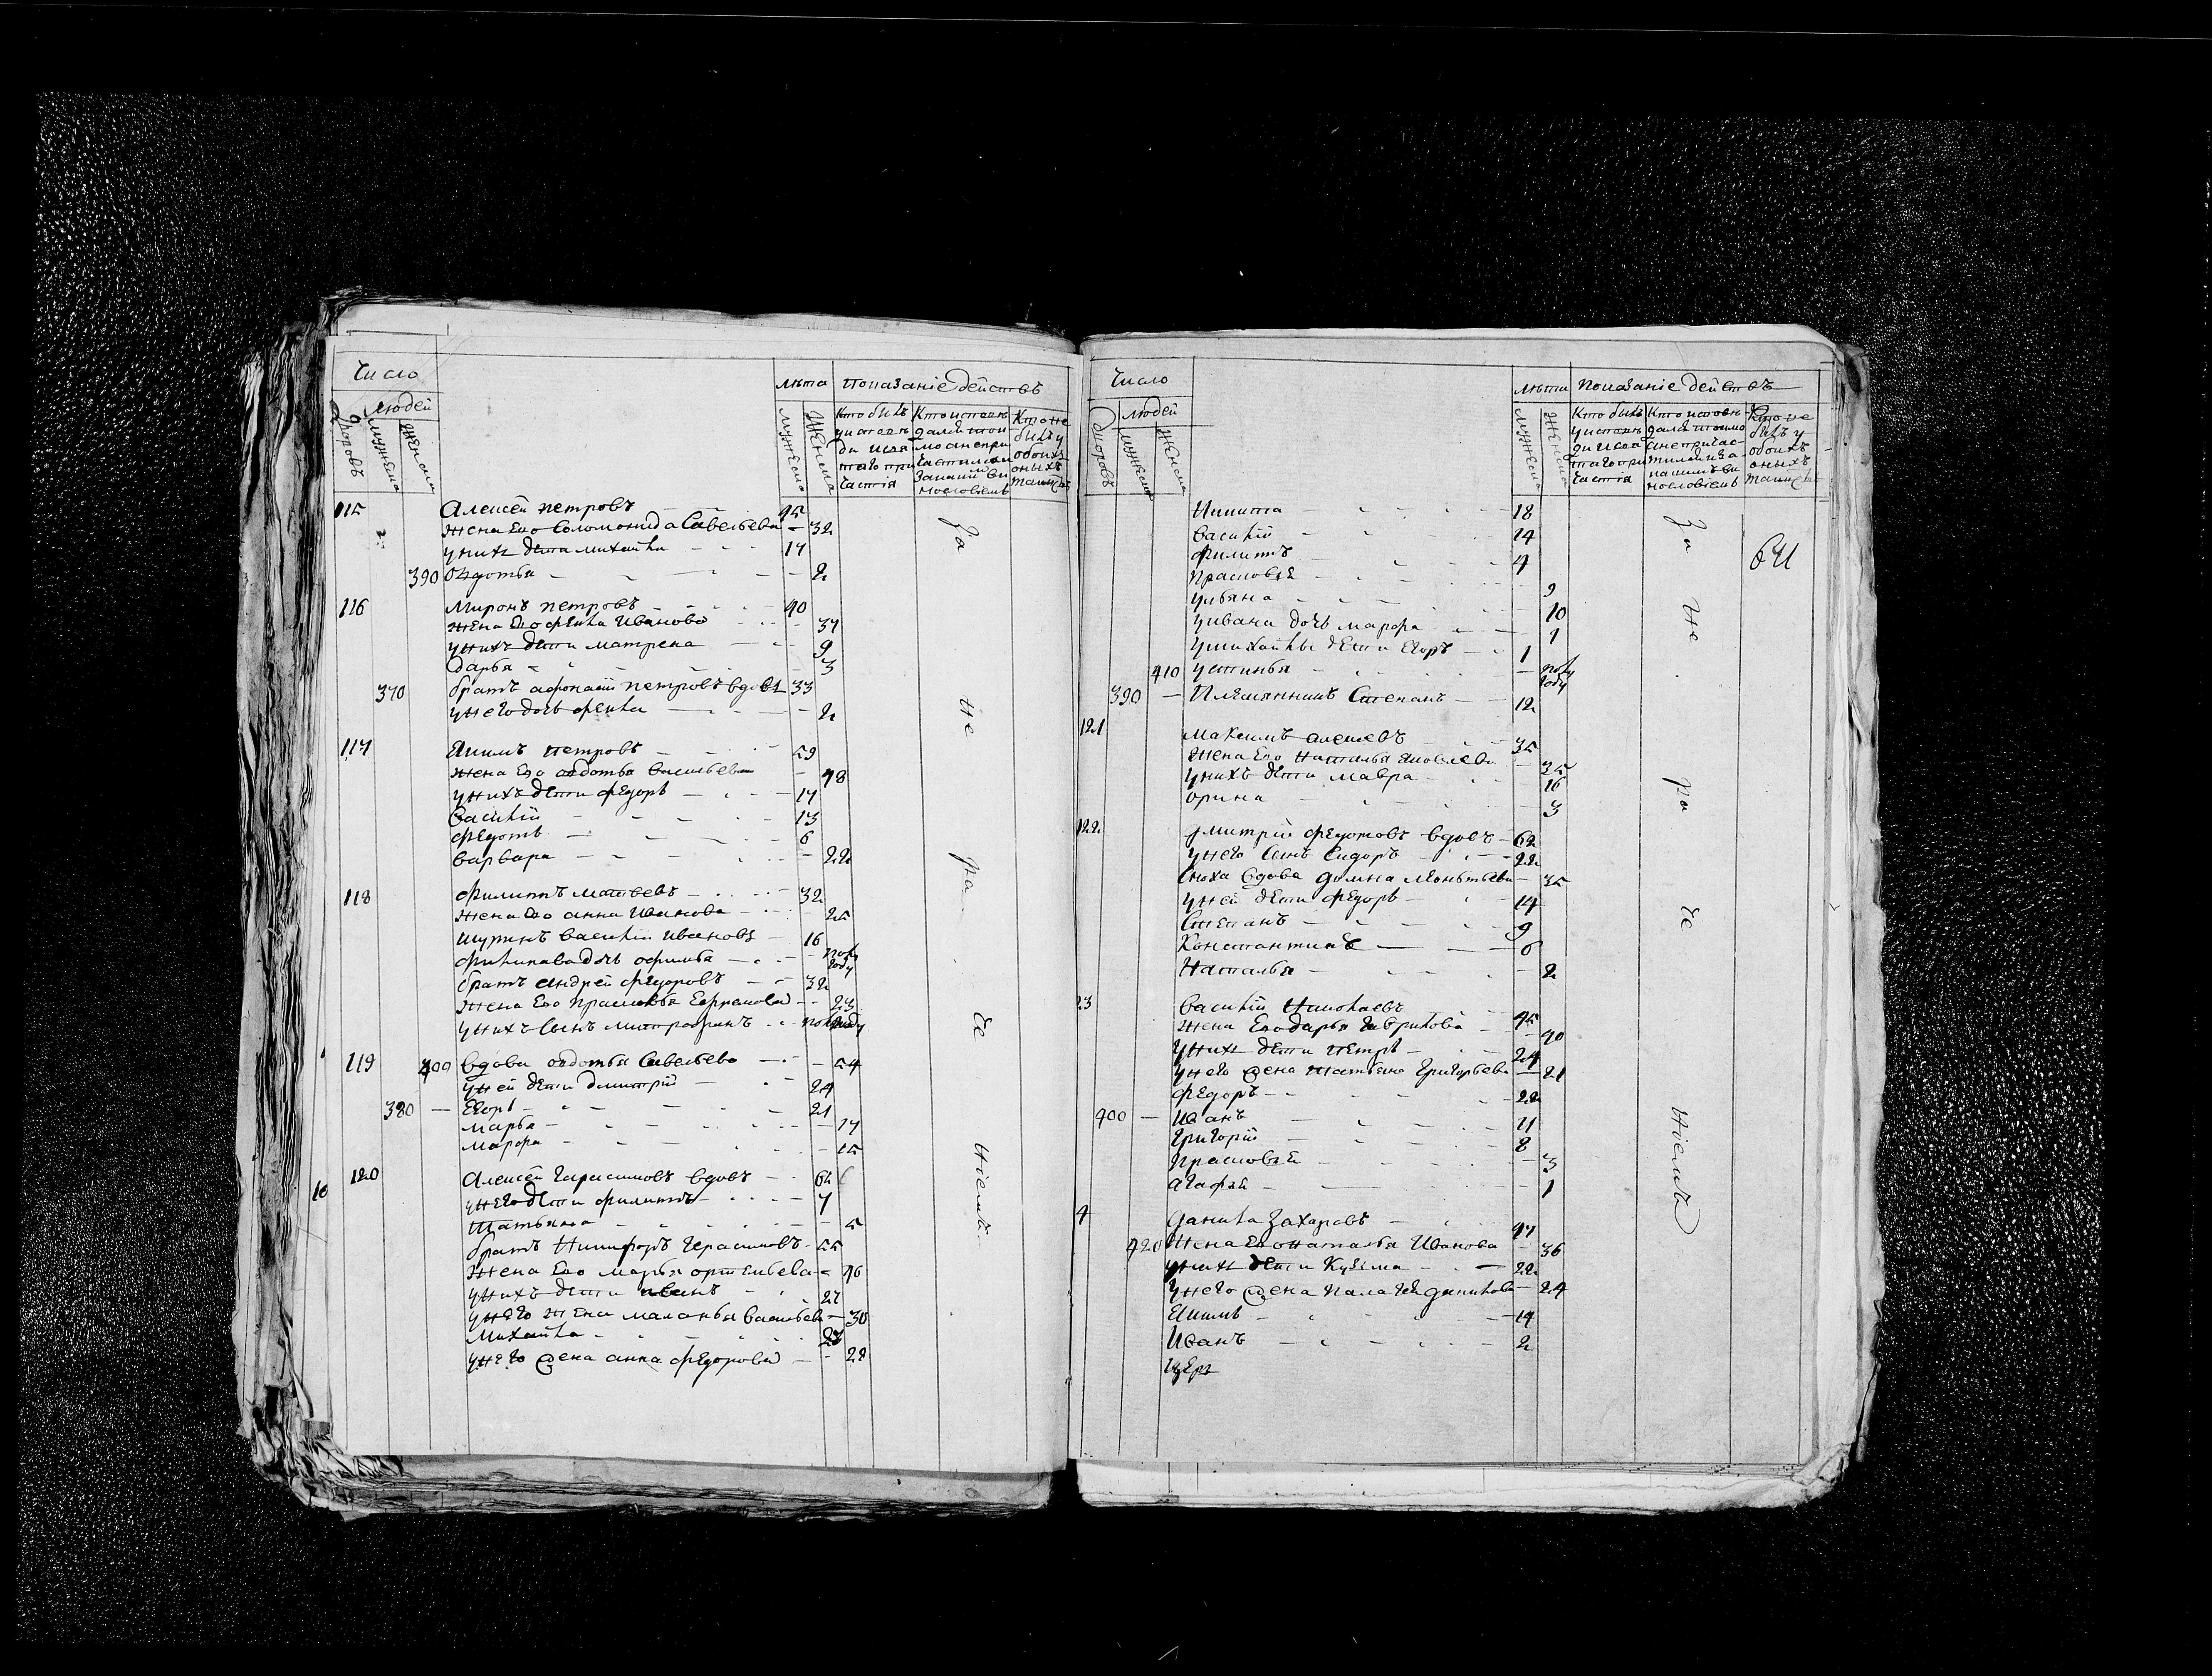 Число
Людей
Дворовъ
Мужеска
Женска
лѣта
Показаніе действъ
Мужеска
Женска
115 Алексей Петровъ 45
жена Ево Соломонида Савельева — 32
у них дети Михайла 17
390 Овдотья — 2
116 Миронъ Петровъ 40
жена Ево Фекла Иванова — 37
у нихъ дети Матрена — 9
Дарья — 3
370 братъ Афонасий Петровъ вдовъ 33
у него дочь Фекла — 2
117 Екимъ Петровъ 59
жена Ево овдотья Васильева — 48
у нихъ дети Федоръ 17
Василий 13
Федотъ 6
Варвара — 22
118 Филиппъ Матвевъ 32
жена Ево анна Иванова — 25
шуринъ Василий Ивановъ 16
Филипава дочь офимья — полу году
братъ андрей Федоровъ 32
жена Ево Прасковья Ефремова — 23
у нихъ сынъ Митрофанъ полугоду
119 400 вдова овдотья Савельева — 54
у ней дети Дмитрий 24
380 — Егоръ 21
Марья — 17
Марфа — 15
16 120 Алексей Гарасимовъ вдовъ 62
у него дети Филиппъ 7
Татьяна — 5
братъ Никифоръ Герасимовъ 55
жена Ево Марья ортемьева — 46
у нихъ дети 27
у него жена Маланья Васильева — 30
Михайла 23
у него жена анна Федорова — 22
За не ра че ніемъ
Число
Людей
Дворовъ
Мужеска
Женска
лѣта
Показаніе действъ
Мужеска
Женска
641
Никита 18
Василий 14
Филиппъ 4
Прасковья — 9
Ульяна — 10
у ивана дочь Марфа — 1
у михайлы дети Егоръ 1
410 устинья — полу году
390 — Племянникъ Степанъ 12
121 Максимъ алексевъ 35
жена Ево Наталья Яковлева — 35
у нихъ дети Мавра — 16
орина — 3
122 Дмитрий Федотовъ вдовъ 62
у него сынъ Сидоръ 22
сноха вдова Домна Леонтьева — 35
у ней дети Федоръ 14
Степанъ 9
Константинъ 6
Наталья — 2
23 Василий Николаевъ 45
жена Ево дарья Гаврилова — 40
у них дети Петръ 24
у него жена Татьяна Григорьева — 21
Федоръ 22
400 — Иванъ 11
Григорий 8
Прасковья — 3
Агафья — 1
4 Данила Захаровъ 47
420 жена Ево наталья Иванова — 36
у них дети Кузьма 22
у него жена Палагея данилова — 24
Екимъ 14
Иванъ 2
За не ра че ніемъ